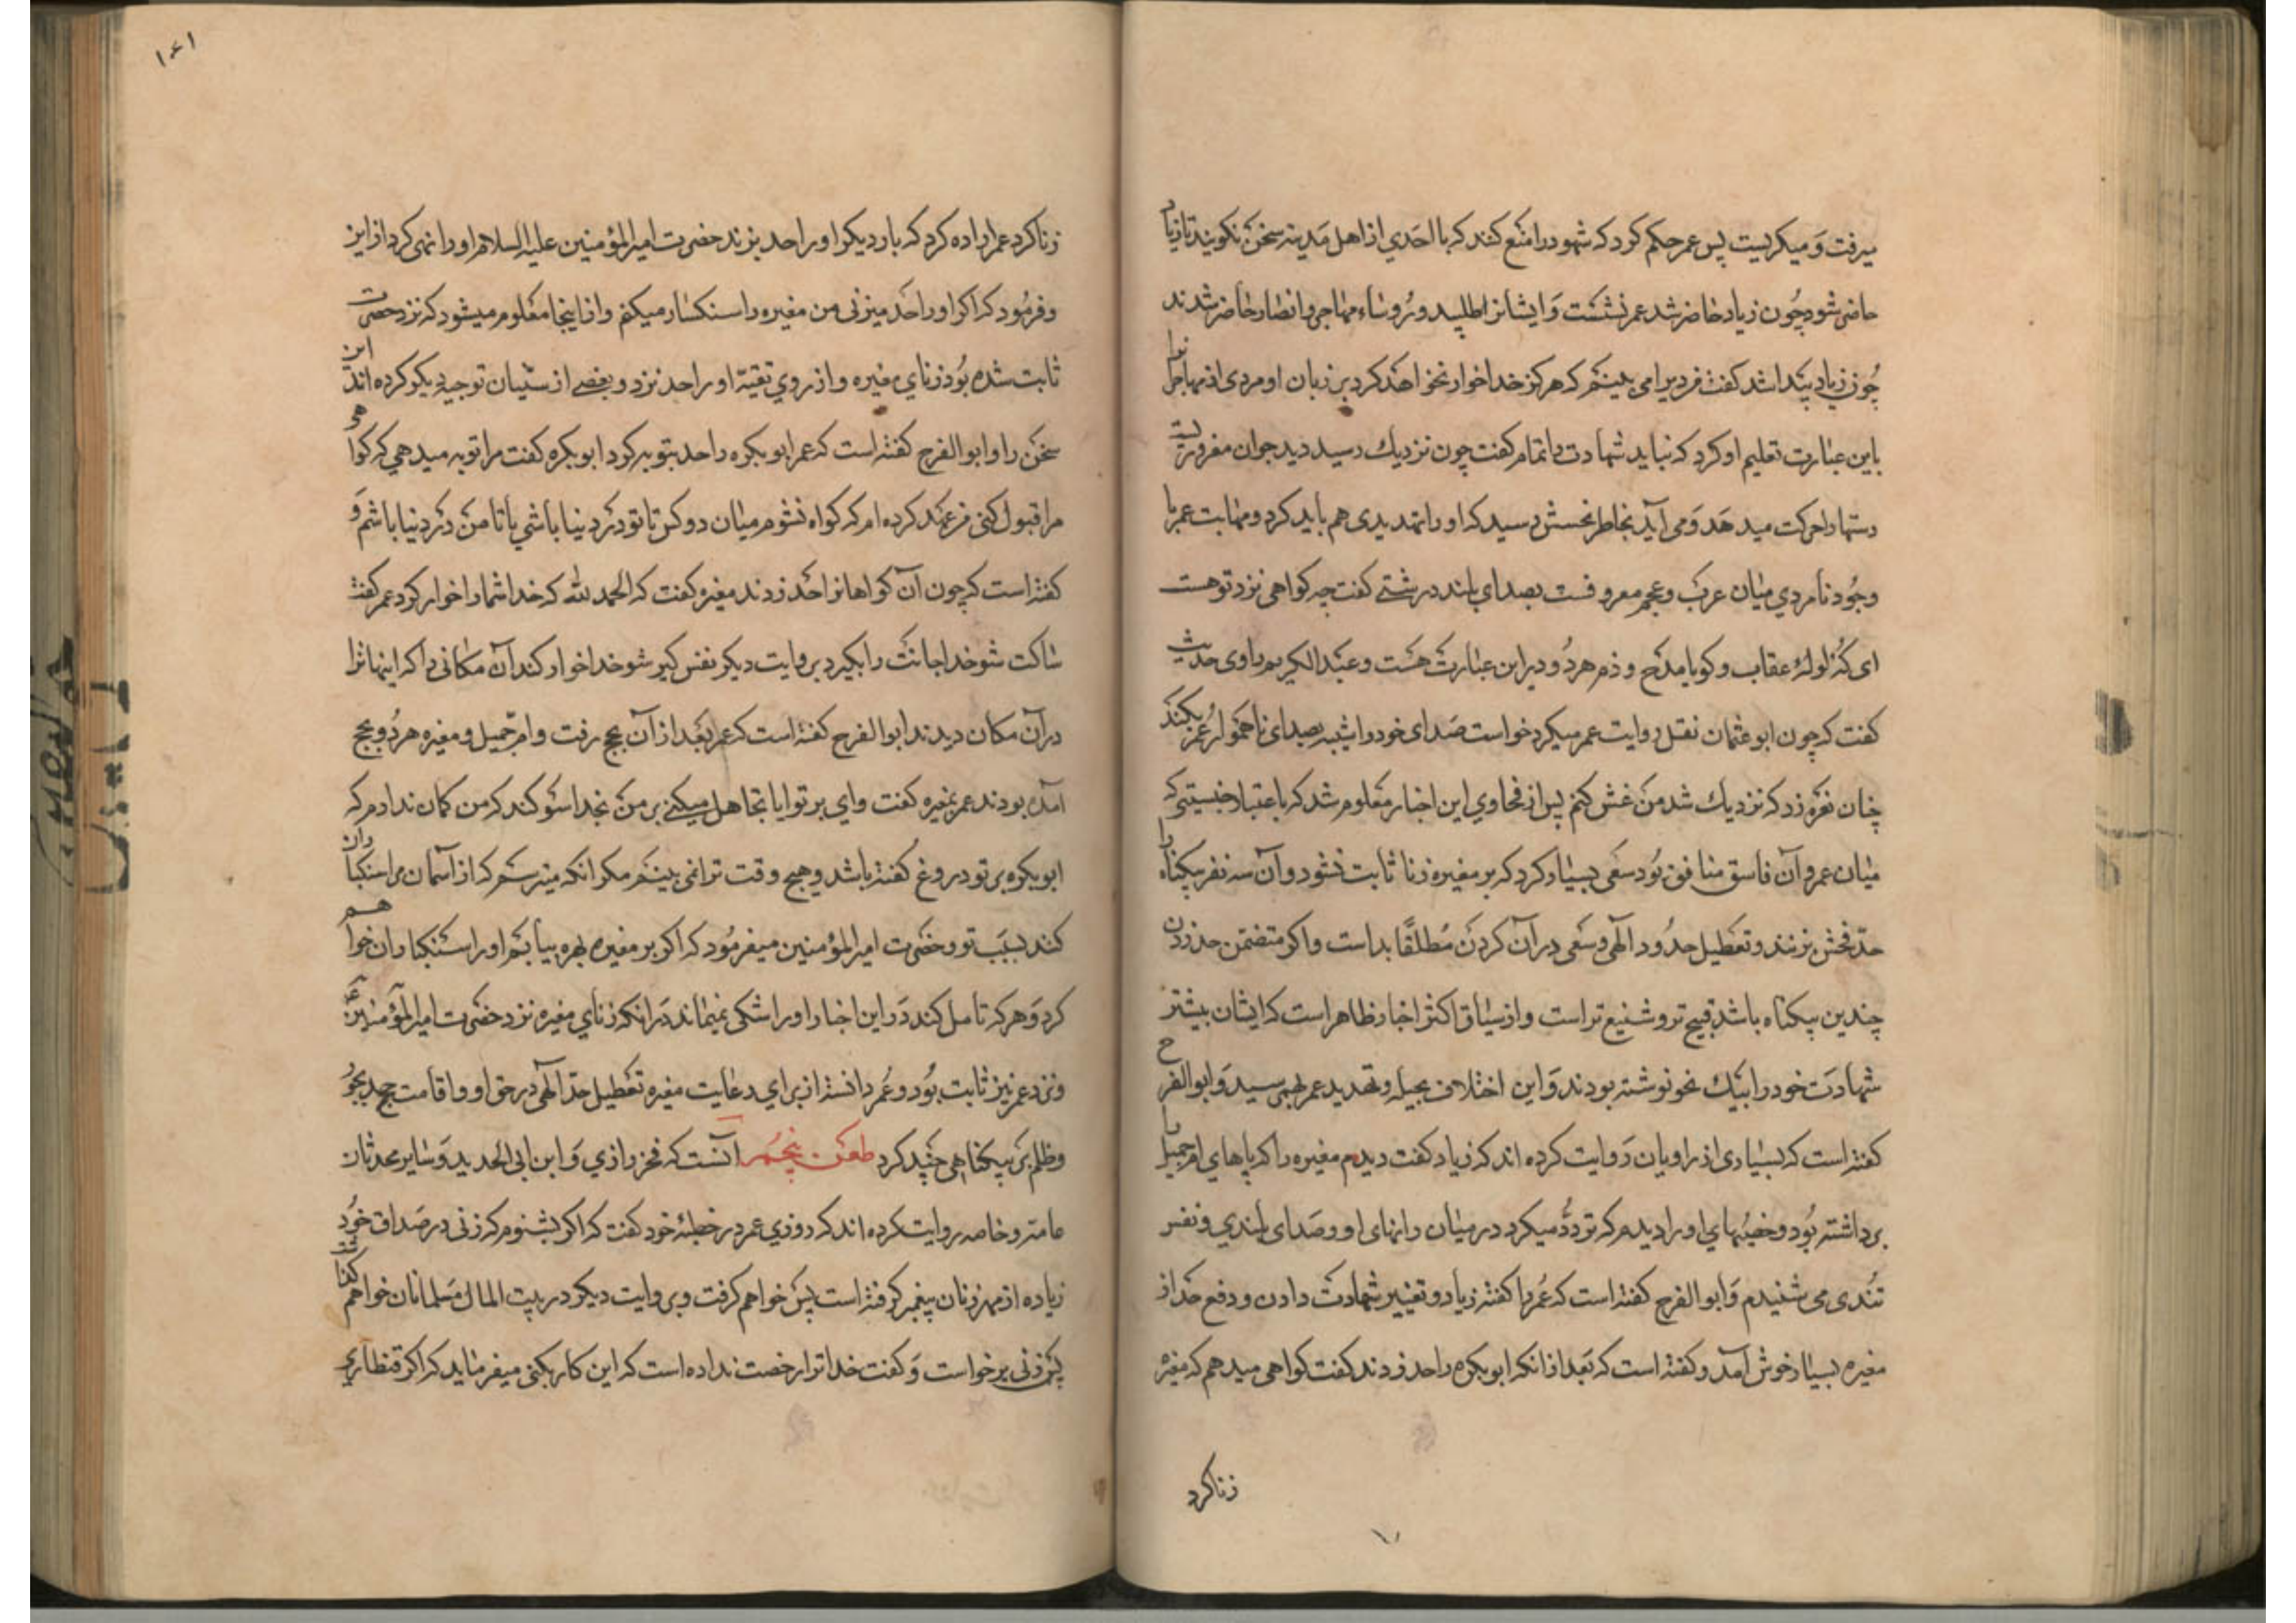 میرفت و میکریست پس عمر حکم کرد که شهود را منع کنند که با احدی از اهل مدینه سخن نکویند تا زیاد
حاضر شود چون زیاد حاضر شد عمر نشست و ایشانرا طلبید و رؤساء مهاجر و انصار حاضر شدند
چون زیاد پیدا شد کفت مردیرا می بینم که هرکز خدا خوار نخواهد کرد بر زبان او مردی از مهاجرانرا
باین عبارت تعلیم او کرد که نباید شهادت را تمام کفت چون نزدیك رسید دید جوان مغروریست
دستها را حرکت میدهد و می آید بخاطر نحسش رسید که او را تهدیدی هم باید کرد و مهابت عمر با
وجود نامردی میان عرب و عجم معروفست بصدای بلند درشتی کفت چه کواهی نزد تو هست
ای کُه لولهٔ عقاب و کویا مدح و ذم هر دو در این عبارت هست و عبد الکریم راوی حدیث
کفت که چون ابو عثمان نقل روایت عمر میکرد خواست صدای خود را شبیه بصدای ناهموار عمر بکند
چنان نعره زد که نزدیك شد من غش کنم پس از فحاوی این اخبار معلوم شد که باعتبار خبیثیتی که
میان عمر و آن فاسق منافق بود سعی بسیار کرد که بر مغیره زنا ثابت نشود و آن سه نفر بیکناه را
حدّ فحش بزنند و تعطیل حدود الهی و سعی در آن کردن مطلقًا بد است و اکر متضمن حد زدن
چندین بیکناه باشد قبیح تر و شنیع تر است و از سیاق اکثر اخبار ظاهر است که ایشان بیشتر
شهادت خود را بیك نحو نوشته بودند و این اختلاف بحیله و تهدید عمر بهم رسید و ابو الفرج
کفته است که بسیاری از راویان روایت کرده اند که زیاد کفت دیدم مغیره را که پاهای ام جمیل را
برداشته بود و خصیهای او را دیدم که تردّد میکرد در میان رانهای او و صدای بلندی و نفس
تندی می شنیدم و ابو الفرج کفته است که عمر را کفته زیاد و تغییر شهادت دادن و دفع حد از
مغیره بسیار خوش آمد و کفته است که بعد از آنکه ابو بکره را حد زدند کفت کواهی میدهم که مغیره
زنا کرد
۱۴۱
زنا کرد عمر اراده کرد که بار دیکر او را حد بزند حضرت امیر المؤمنین علیه السلام او را نهی کرد از این
و فرمود که اکر او را حد میزنی من مغیره را سنکسار میکنم و از اینجا معلوم میشود که نزد حضرت
ثابت شده بود زنای مغیره و از روی تقیّه او را حد نزد و بعضی از سنّیان توجیه دیکر کرده اند این
سخن را و ابو الفرج کفته است که عمر ابو بکره را حد بتوبه کرد ابو بکره کفت مرا توبه میدهی که کواهی
مرا قبول کنی فرعهد کرده ام که کواه نشوم میان دو کس تا تو در دنیا باشی یا تا من در دنیا باشم و
کفته است که چون آن کواهانرا حد زدند مغیره کفت که الحمد لله که خدا شما را خوار کرد عمر کفت
ساکت شو خدا جانت را بکیرد بروایت دیکر نفس کیر شو خدا خوار کند آن مکانی را که اینها ترا
در آن مکان دیدند ابو الفرح کفته است که عمر بعد از آن بحج رفت و ام جمیل و مغیره هر دو بحج
آمده بودند عمر بمغیره کفت وای بر تو ایا تجاهل میکنی بر من بخدا سوکند که من کمان ندارم که
ابو بکره بر تو دروغ کفته باشد و هیچ وقت ترا نمی بینم مکر انکه میترسم که از آسمان مرا سنکباران
کنند بسبب تو و حضرت امیر المؤمنین میفرمود که اکر بر مغیره بهره بیابم او را سنکباران خواهم
کرد و هر که تامل کند در این اخبار او را شکی نمیماند در آنکه زنای مغیره نزد حضرت امیر المؤمنین ع
و نزد عمر نیز ثابت بود و عمر دانسته از برای رعایت مغیره تعطیل حدّ الهی در حق او و اقامت حد بجور
و ظلم بر بیکناهی چند کرد طعن پنجم آنست که فخر رازی و ابن ابی الحدید و سایر محدثان
عامه و خاصه روایت کرده اند که روزی عمر در خطبهٔ خود کفت که اکر بشنوم که زنی در صداق خود
زیاده از مهر زنان پیغمبر کرفته است پس خواهم کرفت و بروایت دیکر در بیت المال مسلمانان خواهم کذاشت
پس زنی برخواست و کفت خدا ترا رخصت نداده است که این کار بکنی میفرماید که اکر قنطاری